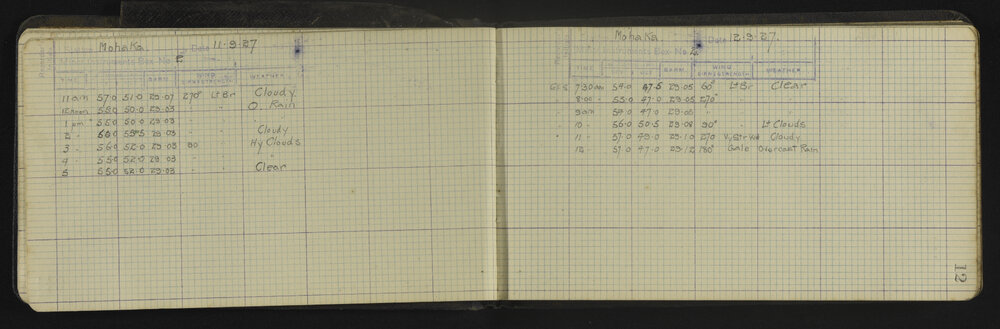 Mohaka Date 11.9.27
Instruments Box No E
TIME BARM WIND DIR & STRENGTH WEATHER
11 am 57.0 51.0 29.07 270° Lt Br Cloudy
12 noon 55.0 50.0 29.03 " " O. Rain
1 pm 55.0 50.0 29.03 " "
2 " 29.03 " " Cloudy
3 " 56.0 52.0 29.03 90 " Hy Clouds
4 " 55.0 52.0 29.03 " " "
5 55.0 52.0 29.03 " " Clear
Mohaka Date 12.9.27.
Instruments Box No E
TIME BARM WIND DIR & STRENGTH WEATHER
7.30 am 54.0 47.5 29.05 60° Lt Br Clear
8.00 " 53.0 47.0 29.05 270° " "
" 9 am 54.0 47.0 29.06 " " "
" 10 " 56.0 50.5 29.08 90° " Lt Clouds
" 11 " 57.0 49.0 29.10 270 Vy Str Wd Cloudy
12 57.0 47.0 29.12 180° Gale Overcast Rain
12